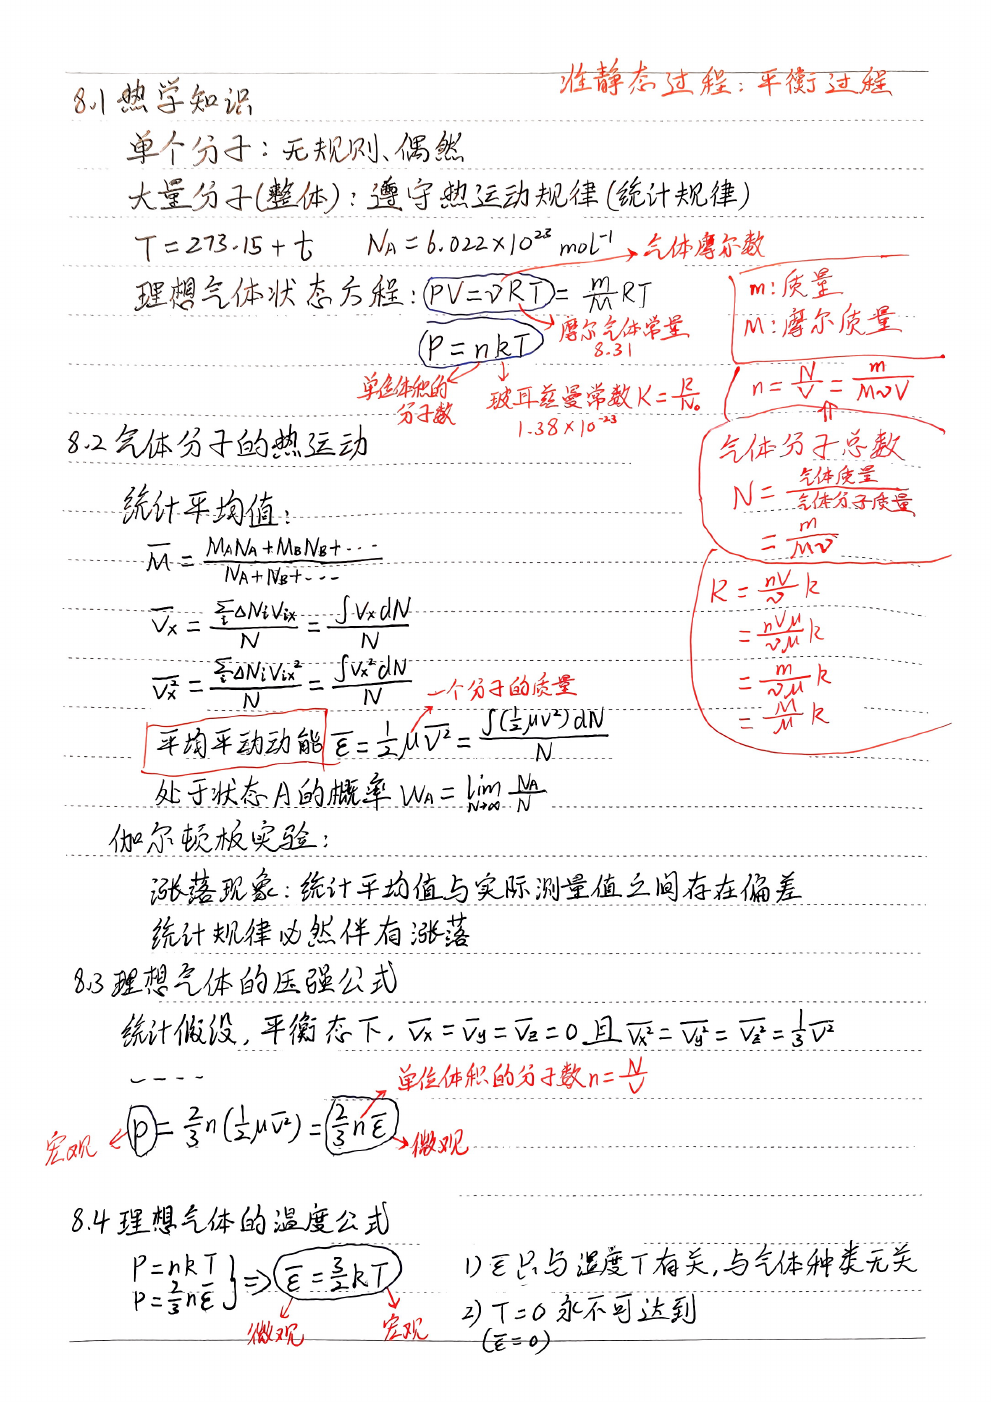 准静态过程：平衡过程
8.1 热学知识
单个分子：无规则、偶然
大量分子(整体)：遵守热运动规律(统计规律)
T=273.15+t  N_A=6.022×10²³ mol⁻¹
气体摩尔数
理想气体状态方程：PV=νRT=m/M RT
m：质量
M：摩尔质量
摩尔气体常量
8.31
P=nkT
单位体积的
分子数
玻耳兹曼常数K=R/N₀
1.38×10⁻²³
n=N/V=m/MνV
气体分子总数
N=气体质量/气体分子质量
=m/Mν
8.2 气体分子的热运动
统计平均值：
M̅=(M_A N_A+M_B N_B+···)/(N_A+N_B+···)
V̅x=Σᵢ ΔNᵢVᵢx/N=∫VxdN/N
V̅x²=Σᵢ ΔNᵢVᵢx²/N=∫Vx²dN/N
R=nV/ν k
=nVμ/νμ k
=m/νμ k
=M/μ k
一个分子的质量
平均平动动能 ε̅=½μV̅²=∫(½μv²)dN/N
处于状态A的概率 W_A=lim N→∞ N_A/N
伽尔顿板实验：
涨落现象：统计平均值与实际测量值之间存在偏差
统计规律必然伴有涨落
8.3 理想气体的压强公式
统计假设，平衡态下，V̅x=V̅y=V̅z=0 且 V̅x²=V̅y²=V̅z²=⅓V̅²
----
单位体积的分子数n=N/V
宏观 P=⅔n(½μV̅²)=⅔nε̅ 微观
8.4 理想气体的温度公式
P=nkT
P=⅔nε̅ } ⇒ ε̅=3/2 kT
微观 宏观
1) ε̅只与温度T有关，与气体种类无关
2) T=0 永不可达到
(ε̅=0)